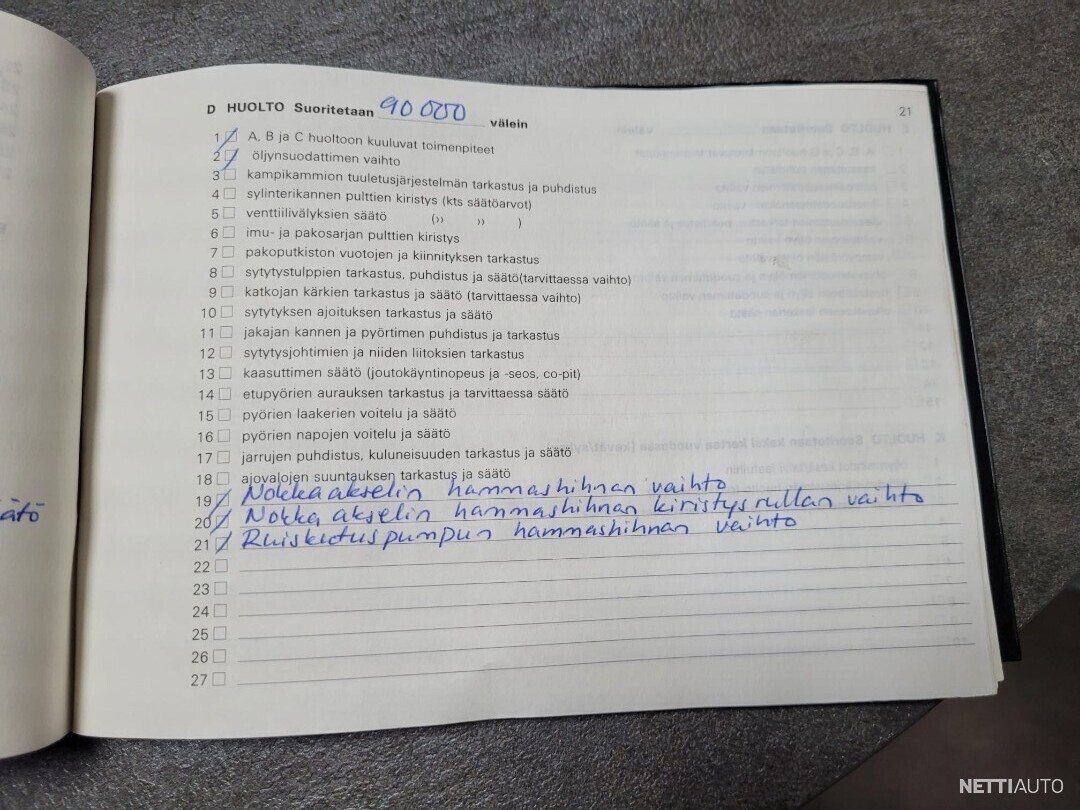 D HUOLTO Suoritetaan 90 000 välein
21
1 A, B ja C huoltoon kuuluvat toimenpiteet
2 öljynsuodattimen vaihto
3 kampikammion tuuletusjärjestelmän tarkastus ja puhdistus
4 sylinterikannen pulttien kiristys (kts säätöarvot)
5 venttiilivälyksien säätö (›› ›› )
6 imu- ja pakosarjan pulttien kiristys
7 pakoputkiston vuotojen ja kiinnityksen tarkastus
8 sytytystulppien tarkastus, puhdistus ja säätö(tarvittaessa vaihto)
9 katkojan kärkien tarkastus ja säätö (tarvittaessa vaihto)
10 sytytyksen ajoituksen tarkastus ja säätö
11 jakajan kannen ja pyörtimen puhdistus ja tarkastus
12 sytytysjohtimien ja niiden liitoksien tarkastus
13 kaasuttimen säätö (joutokäyntinopeus ja -seos, co-pit)
14 etupyörien aurauksen tarkastus ja tarvittaessa säätö
15 pyörien laakerien voitelu ja säätö
16 pyörien napojen voitelu ja säätö
17 jarrujen puhdistus, kuluneisuuden tarkastus ja säätö
18 ajovalojen suuntauksen tarkastus ja säätö
19 Nokka akselin hammashihnan vaihto
20 Nokka akselin hammashihnan kiristysrullan vaihto
21 Ruiskutuspumpun hammashihnan vaihto
22
23
24
25
26
27
NETTIAUTO